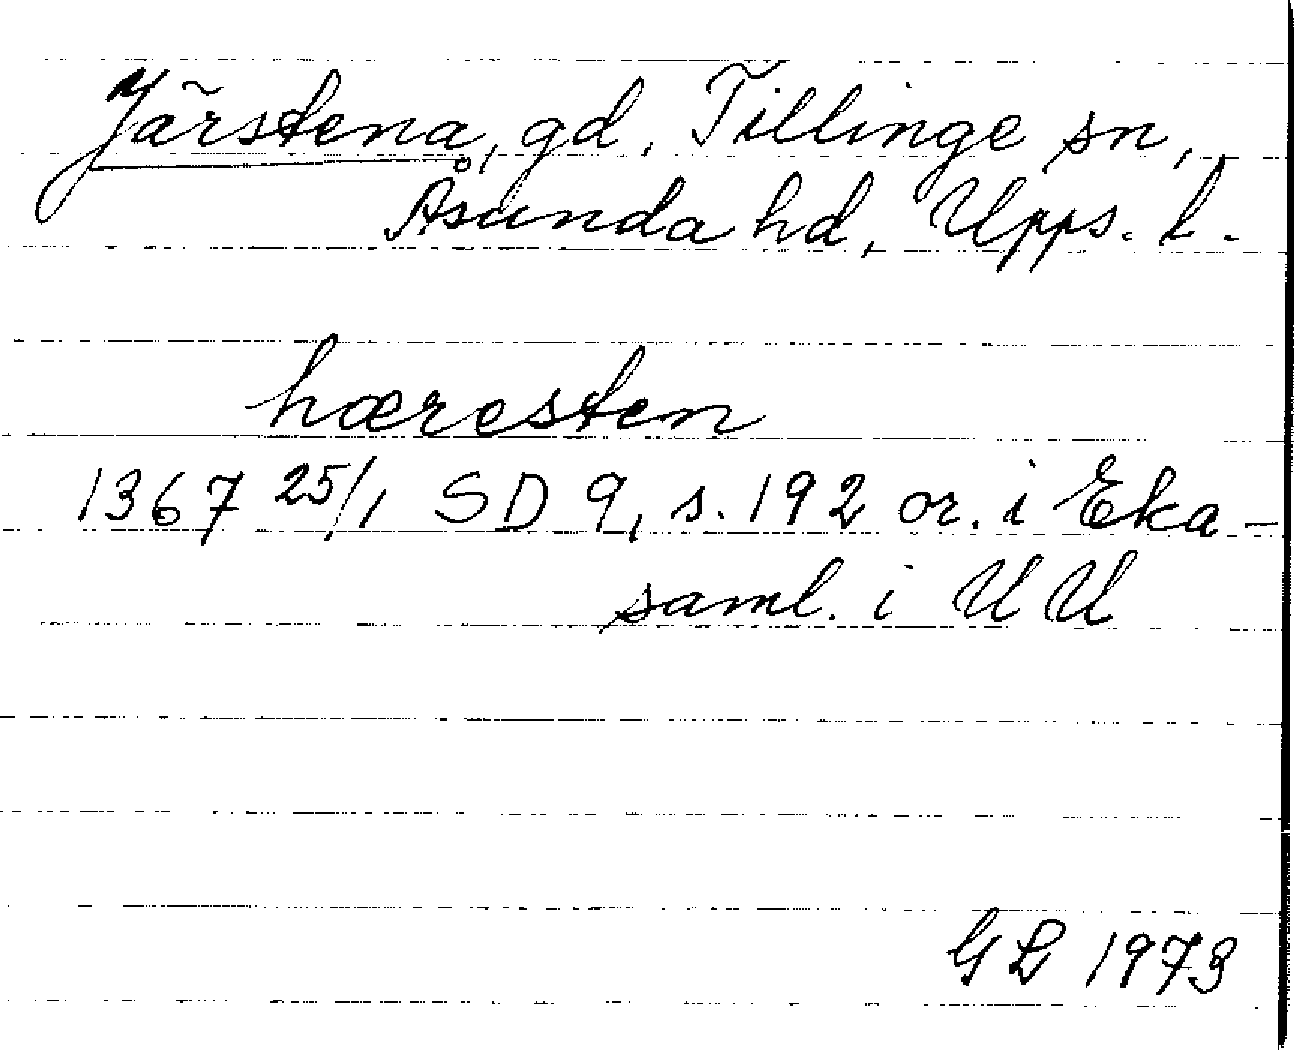 Järstena, gd, Tillinge sn,
Åsunda hd, Upps. l.
hæresten
1367 25/1 SD 9, s. 192 or. i Eka-
saml. i UU
GL 1973